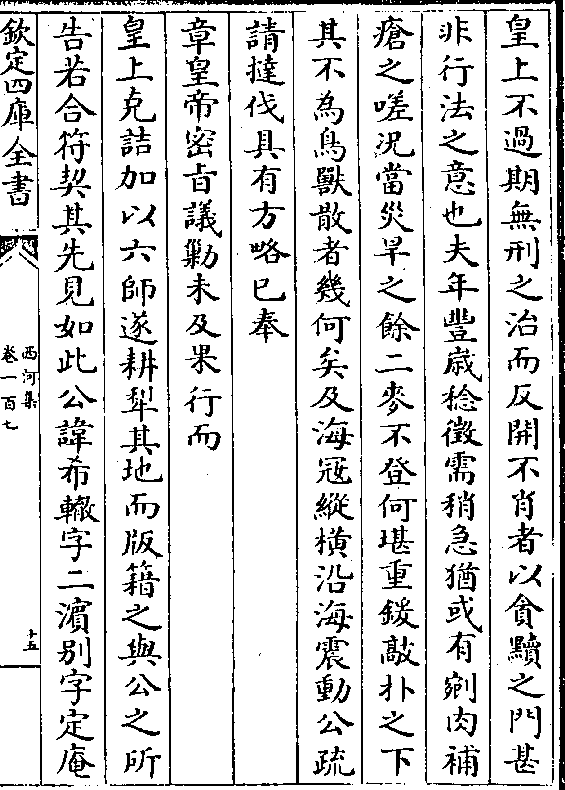 皇上不過期無刑之治而反開不肖者以貪黷之門甚
非行法之意也夫年豐歲稔徵需稍急猶或有剜肉補
瘡之嗟況當災旱之餘二麥不登何堪重鍰敲扑之下
其不為鳥獸散者幾何矣及海冦縱橫沿海震動公疏
請撻伐具有方略已奉
章皇帝密旨議勦未及果行而
皇上克詰加以六師遂耕犁其地而版籍之與公之所
告若合符契其先見如此公諱希轍字二濵别字定庵
欽定四庫全書
西河集
卷一百七
十五